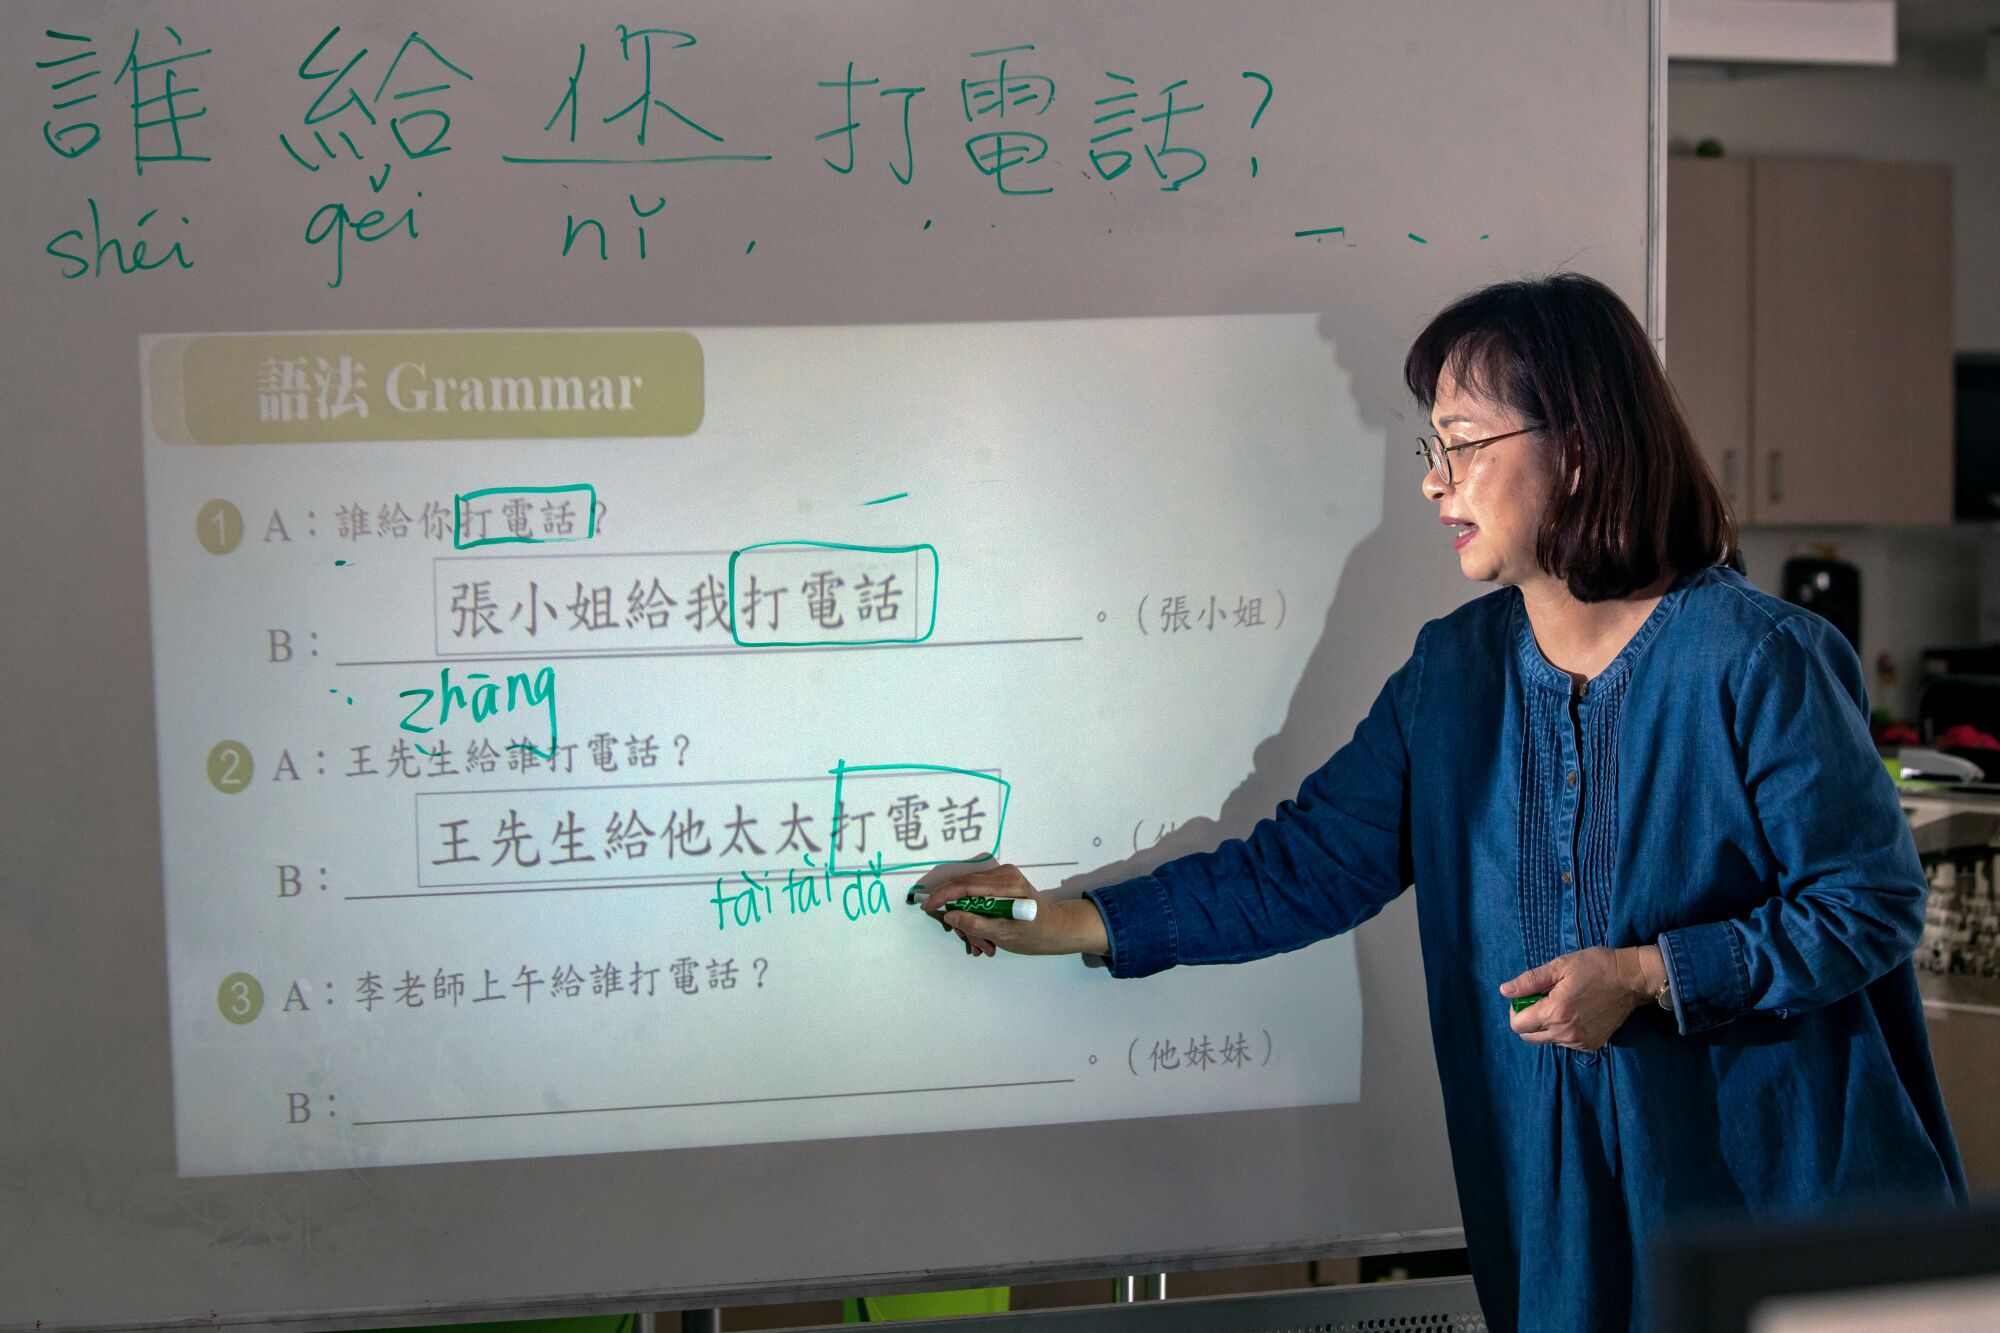 誰給你打電話?
shéi gěi nǐ
語法 Grammar
1 A：誰給你打電話？
張小姐給我打電話
B：。（張小姐）
zhāng
2 A：王先生給誰打電話？
王先生給他太太打電話
B：。（
tàitài dǎ
EXPO
3 A：李老師上午給誰打電話？
B：。（他妹妹）